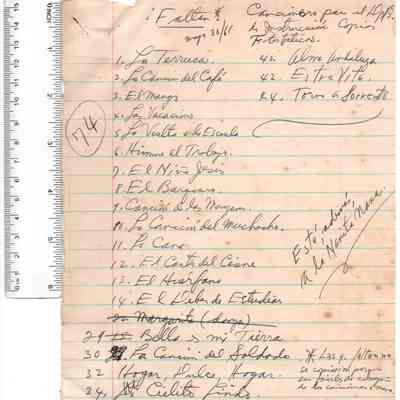 ¡Faltan!
mayo 30/61
Canciones para el Dpto.
de Instrucción Copias
Fotostáticas.
1. La Terruca.
2. La Canción del Café
3. El Mango
4. Las Vacaciones
5. La Vuelta a la Escuela
6. Himno al Trabajo.
7. El Niño Jesús
8. El Barquero.
9. Canción de los Magos.
10. La Canción del Muchacho.
11. La Cana.
12. El Canto del Cisne
13. El Huérfano
14. El Deber de Estudiar
Margarita (danza)
29 Bella es mi Tierra
30 La Canción del Soldado
32 Hogar, Dulce, Hogar.
34. Cielito Lindo
42. Alma Andaluza
42. Estrellita.
44. Torna a Sorrento
74
Está, además,
A la Nanita Nana.
* Las q. faltan no
se copiaron porque
son
de las canciones